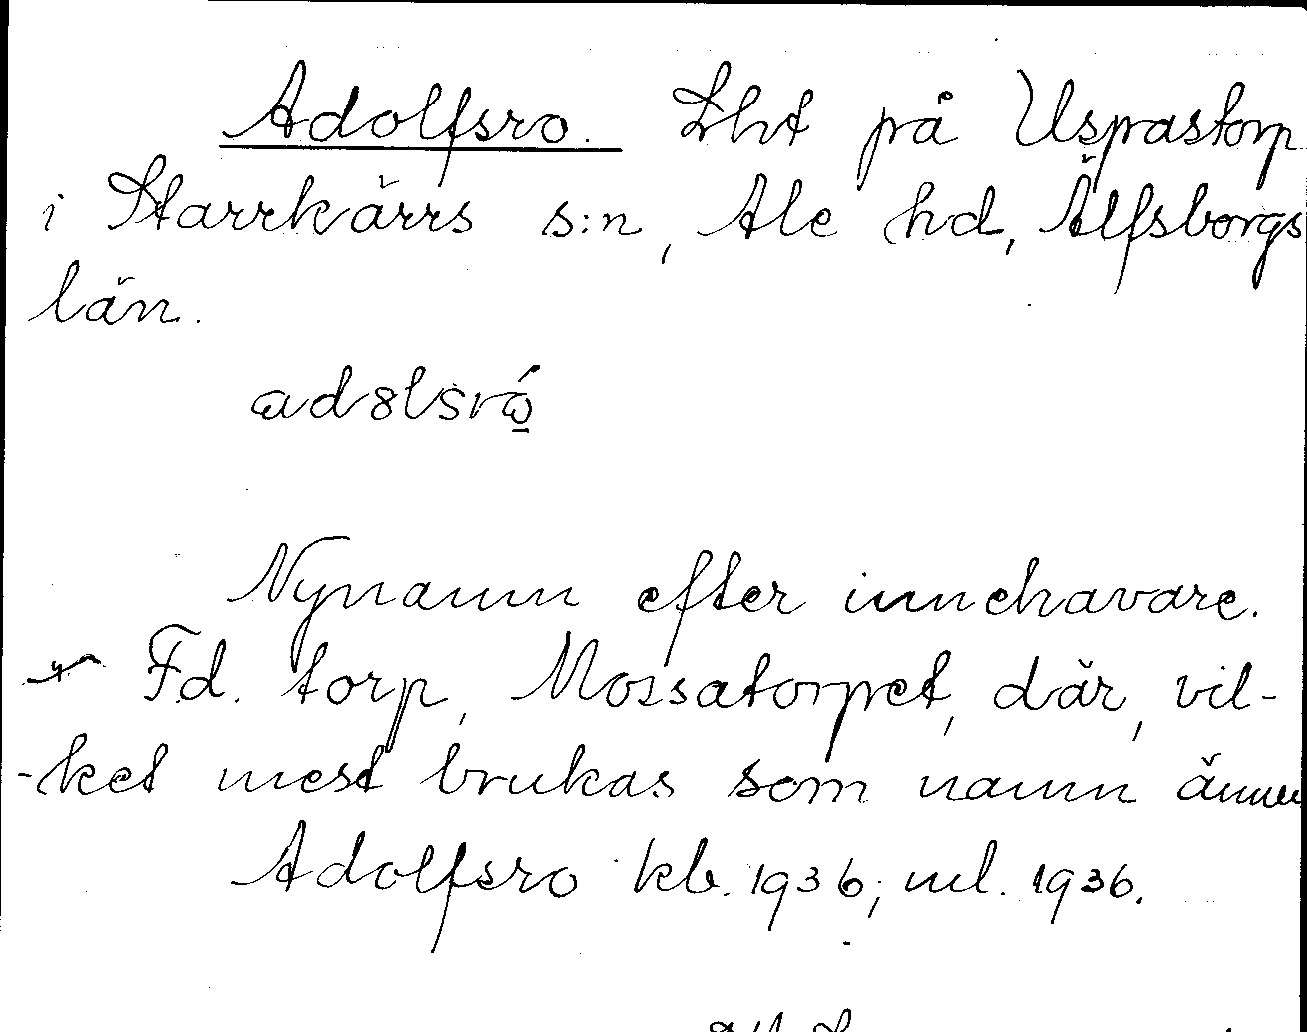 Adolfsro. Lht på Uspastorp
i Starrkärrs s:n, Ale hd, Älfsborgs
län.
Nynamn efter innehavare.
Fd. torp, Mossatorpet, där, vil-
-ket mest brukas som namn ännu
Adolfsro kb. 1936; ml. 1936.